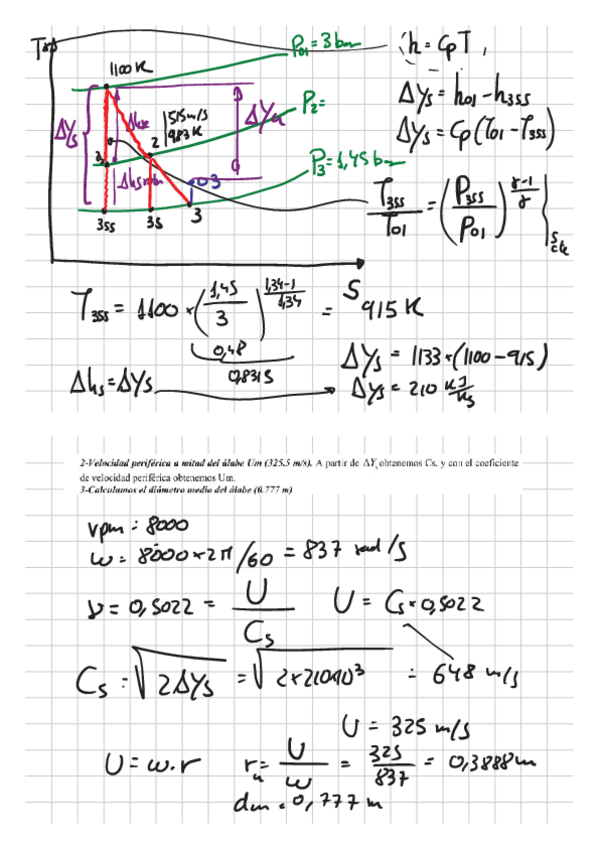 Top
1100 K
P01 = 3 bar
h = Cp T,
ΔYs
Δhse
515 m/s
983 K
ΔYu
P2=
ΔYs = h01 - h3ss
ΔYs = Cp (T01 - T3ss)
2
Δhsrotor
03
P3 = 1,45 bar
3ss
3s
3
T3ss/T01 = (P3ss/P01)^(γ-1/γ) | s cte
S
T3ss = 1100 × (1,45/3)^(1,34-1/1,34) = 915 K
0,48
0,8315
ΔYs = 1133 × (1100 - 915)
Δhs = ΔYs
ΔYs = 210 KJ/Kg
2-Velocidad periférica a mitad del álabe Um (325.5 m/s). A partir de ΔYs obtenemos Cs, y con el coeficiente
de velocidad periférica obtenemos Um.
3-Calculamos el diámetro medio del álabe (0.777 m)
rpm = 8000
ω = 8000 × 2π/60 = 837 rad/s
ν = 0,5022 = U/Cs U = Cs × 0,5022
Cs = √2ΔYs = √2×210×10³ = 648 m/s
U = 325 m/s
U = ω.r r = U/ω = 325/837 = 0,3888 m
dm = 0,777 m